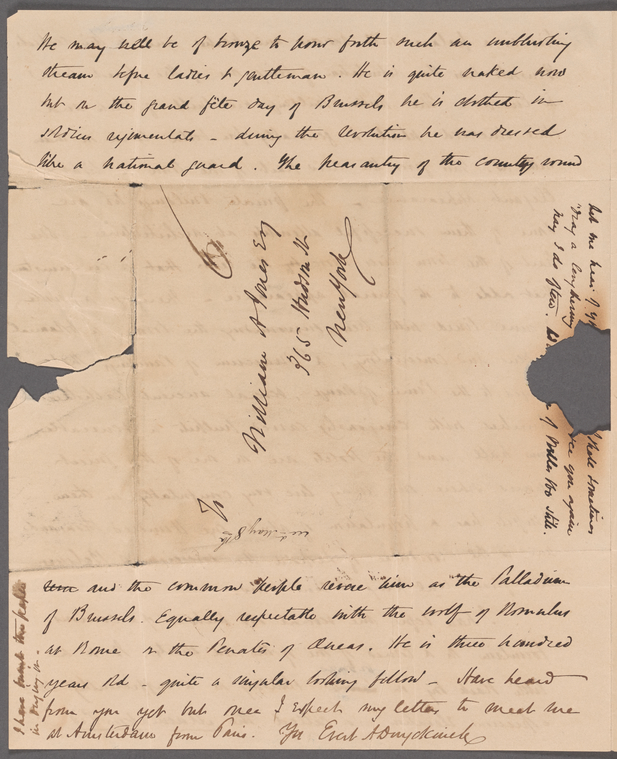 He may well be of bronze to pour forth such an unblushing
stream before ladies & gentleman. He is quite naked now
but on the grand fête day of Brussels he is clothed in
soldiers regimentals – during the revolution he was dressed
like a national guard. The peasantry of the country round
William A Jones Esq
965 Hudson St
New York
May 8th
let me hear of
shall sometimes
may a long
see you again
may I do
of
still.
and the common people revere him as the Palladium
of Brussels. Equally respectable with the wolf of Romulus
at Rome or the Penates of Aeneas. He is three hundred
years old – quite a singular looking fellow – Have heard
from you yet but once I expect my letters to meet me
at Amsterdam from Paris. Yrs Evert A Duyckinck
I have this
in